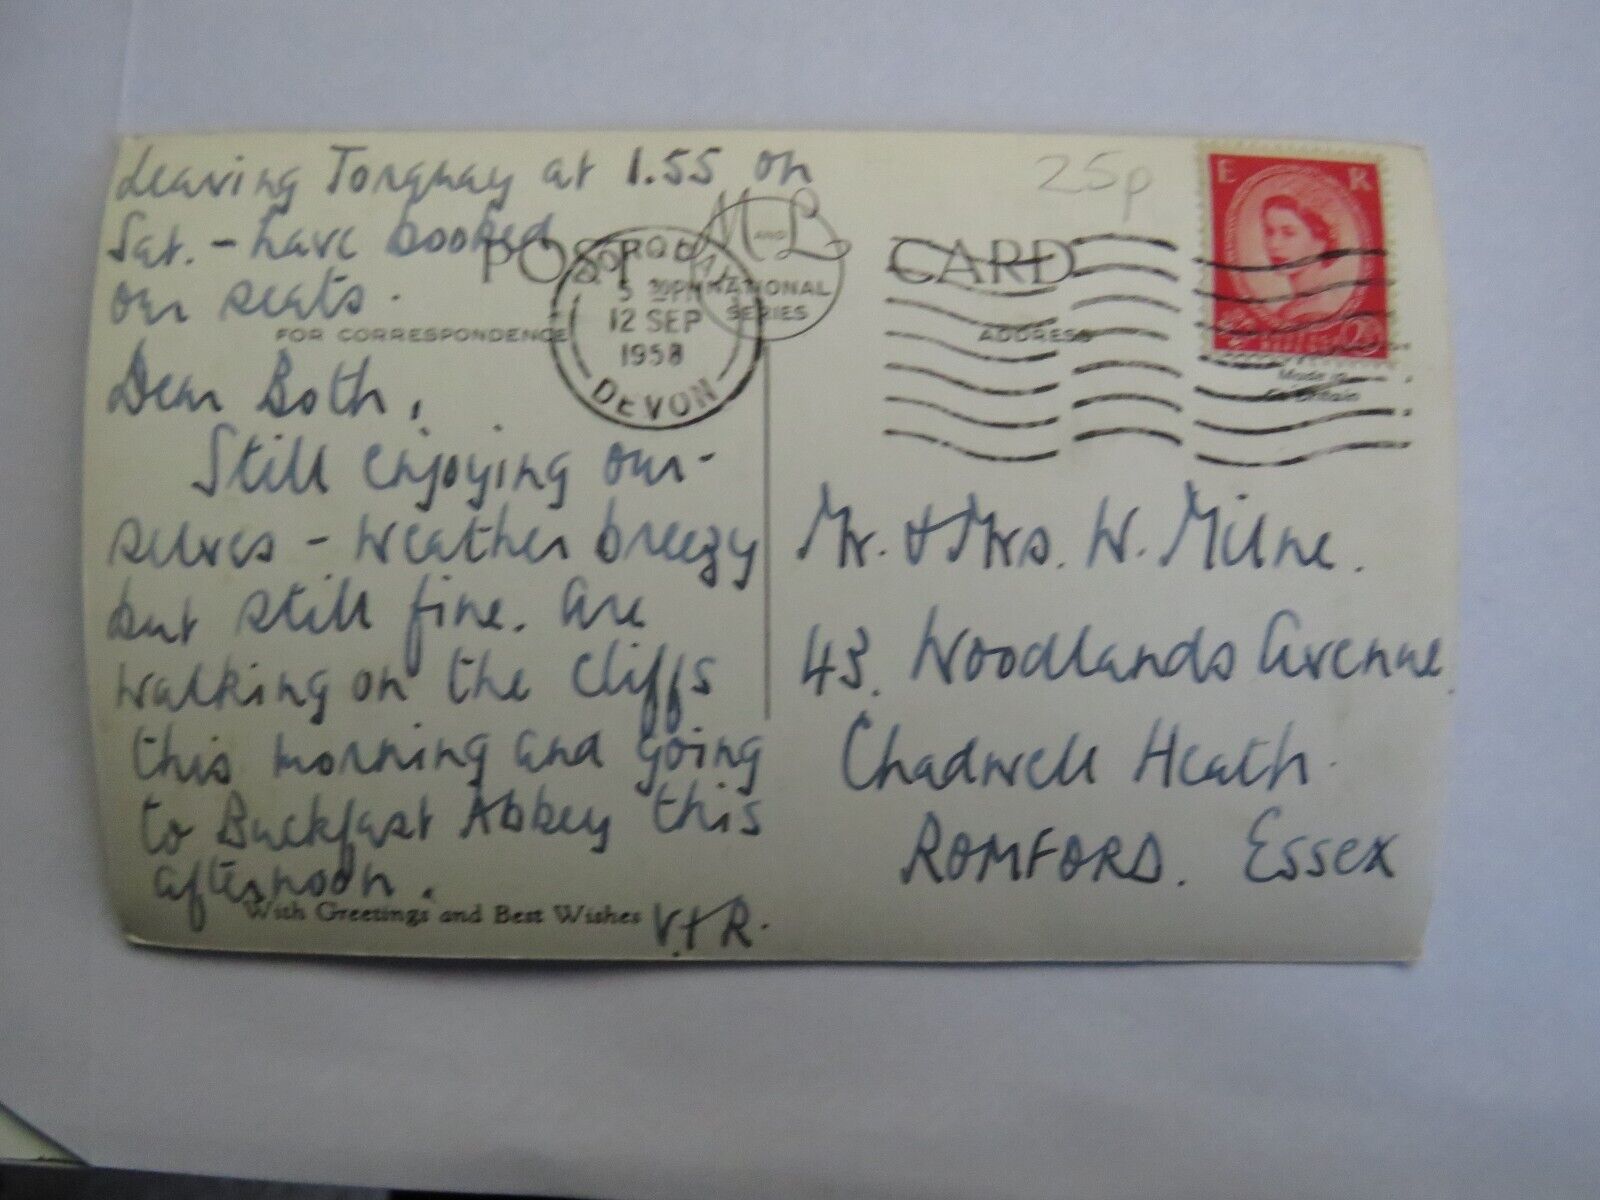 Leaving Torquay at 1.55 on
Sat. – have booked
our seats.
25p
E R
POST CARD
M AND L
NATIONAL
SERIES
5 30PM
12 SEP
1958
DEVON
FOR CORRESPONDENCE
ADDRESS
Made in
Gt. Britain
Dear Both,
Still enjoying our-
selves – weather breezy
but still fine. Are
walking on the cliffs
this morning and going
to Buckfast Abbey this
afternoon.
With Greetings and Best Wishes
V + R.
Mr. & Mrs. W. Milne.
43. Woodlands Avenue.
Chadwell Heath.
ROMFORD. Essex